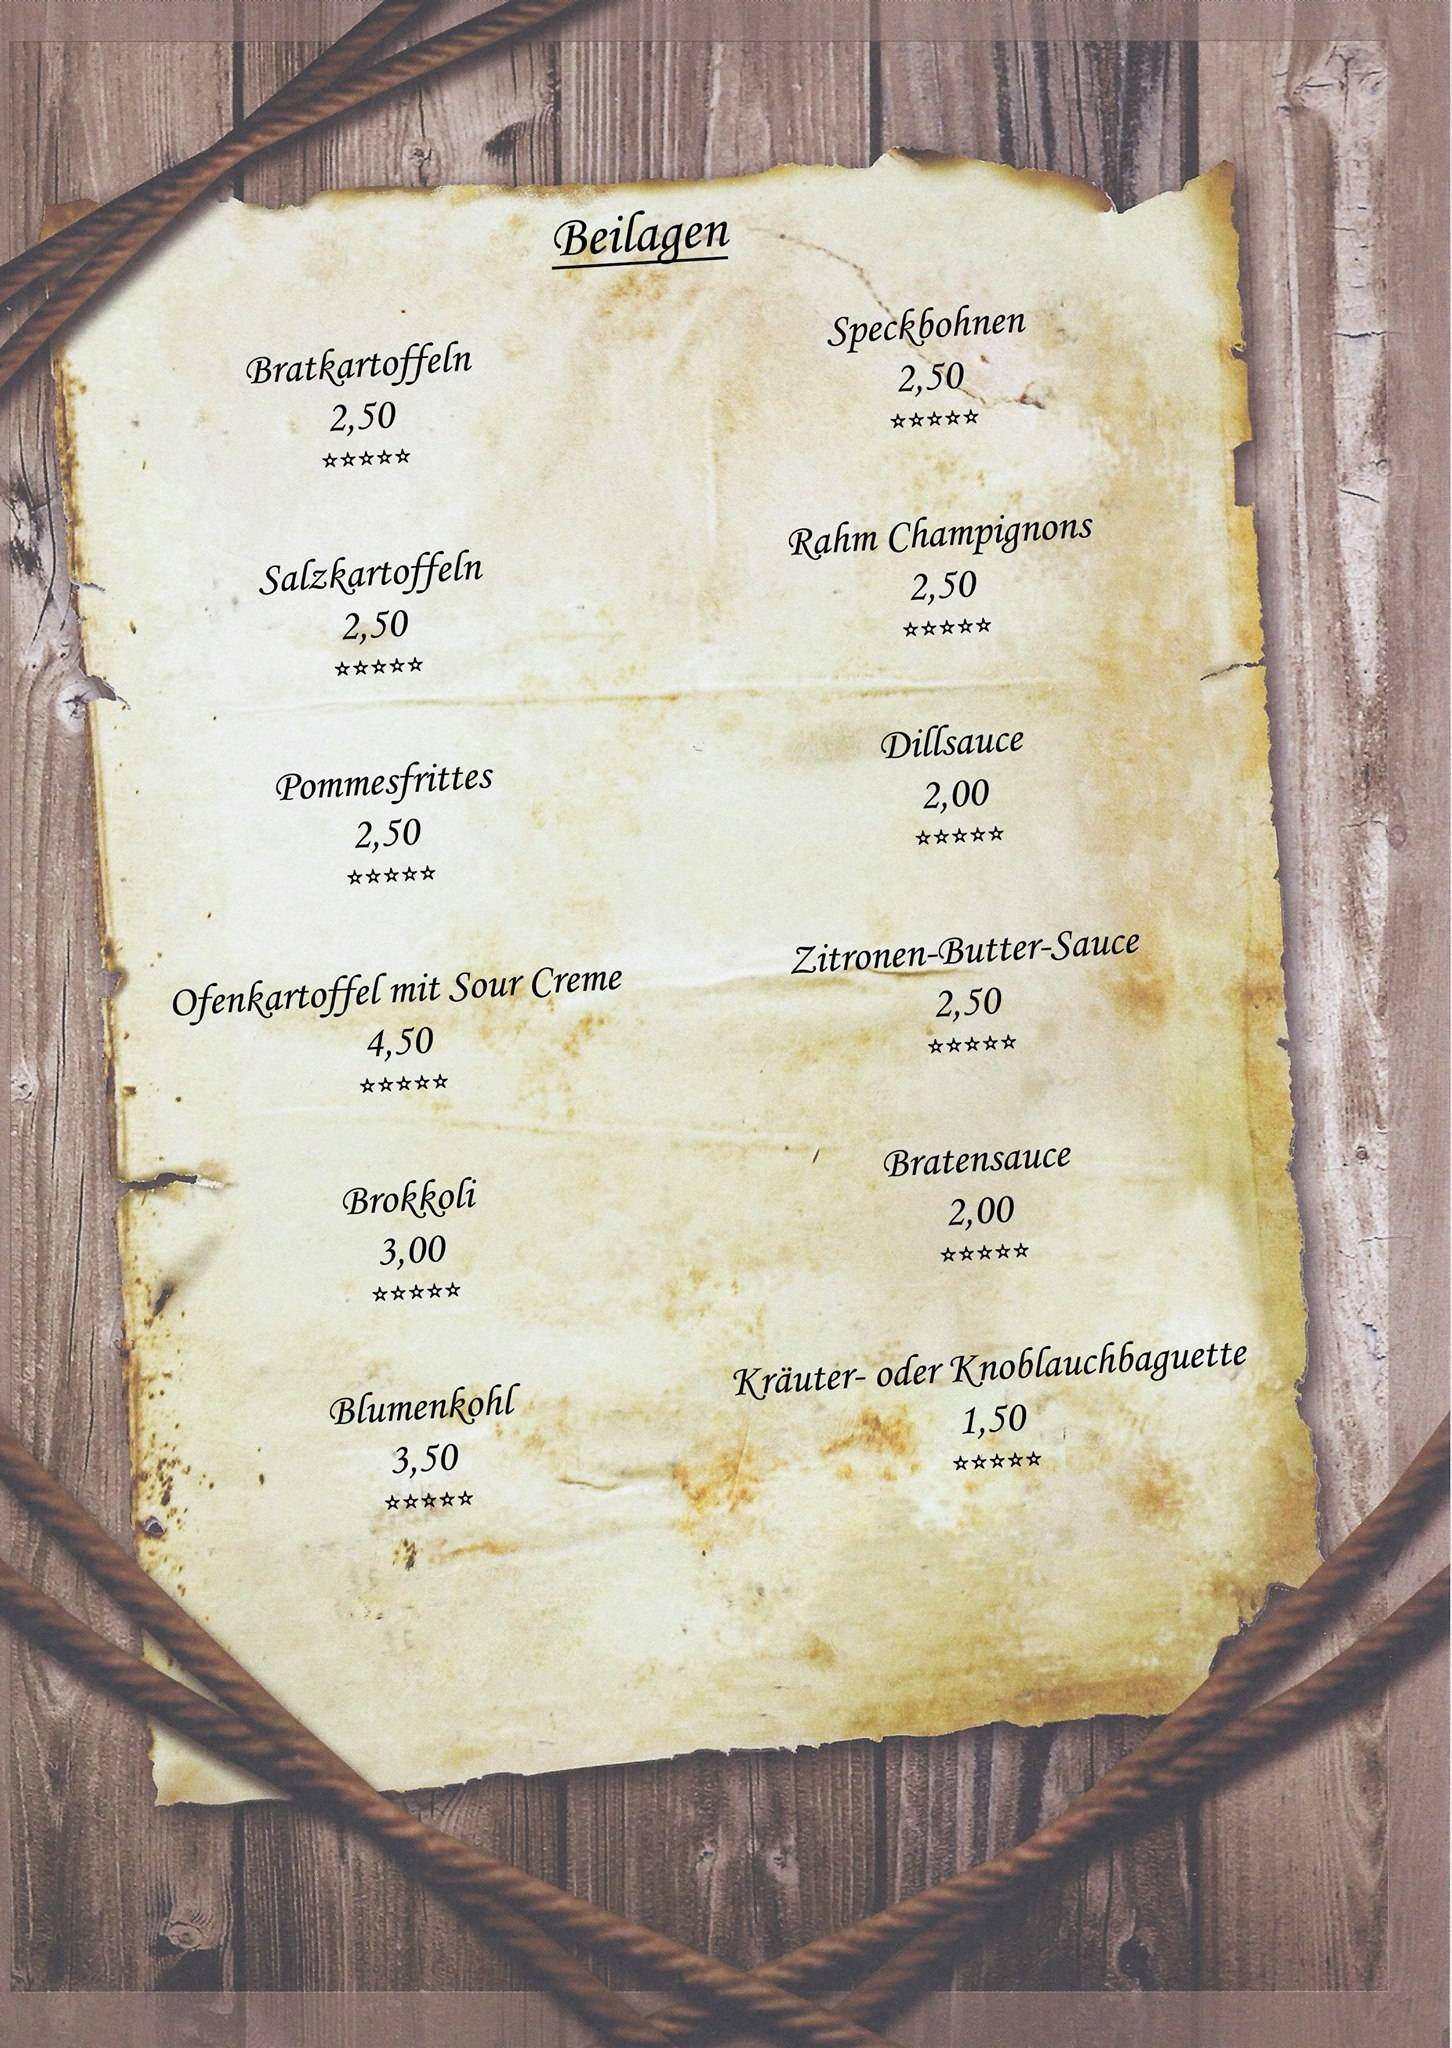 Beilagen
Bratkartoffeln
2,50
☆☆☆☆☆
Salzkartoffeln
2,50
☆☆☆☆☆
Pommesfrittes
2,50
☆☆☆☆☆
Ofenkartoffel mit Sour Creme
4,50
☆☆☆☆☆
Brokkoli
3,00
☆☆☆☆☆
Blumenkohl
3,50
☆☆☆☆☆
Speckbohnen
2,50
☆☆☆☆☆
Rahm Champignons
2,50
☆☆☆☆☆
Dillsauce
2,00
☆☆☆☆☆
Zitronen-Butter-Sauce
2,50
☆☆☆☆☆
Bratensauce
2,00
☆☆☆☆☆
Kräuter- oder Knoblauchbaguette
1,50
☆☆☆☆☆